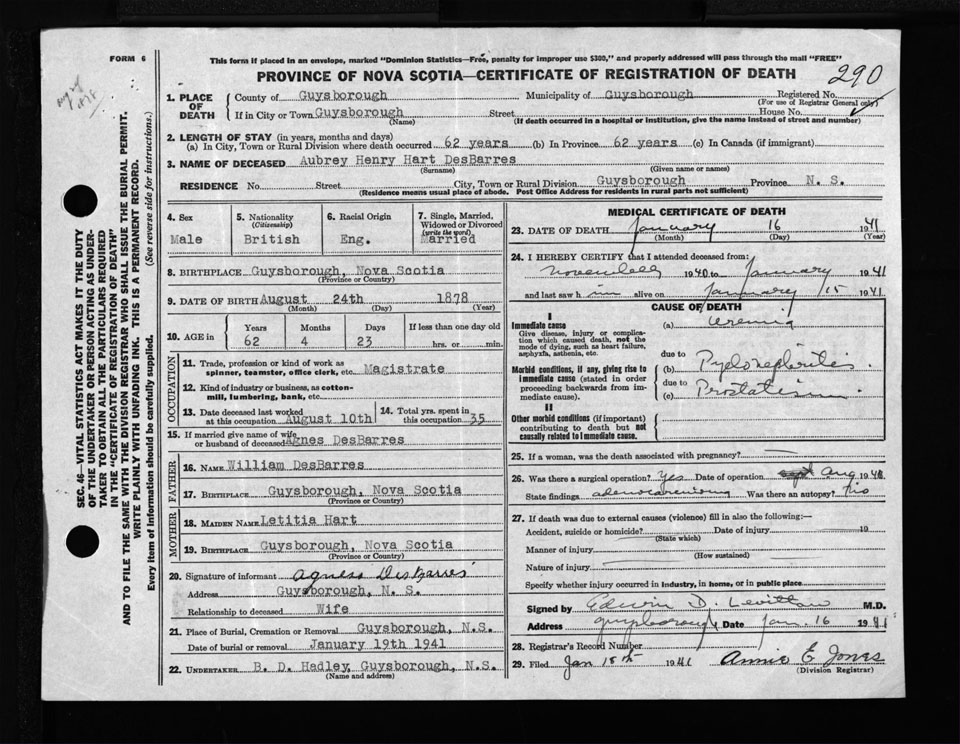 FORM 6
This form if placed in an envelope, marked "Dominion Statistics—Free, penalty for improper use $300," and properly addressed will pass through the mail "FREE"
PROVINCE OF NOVA SCOTIA—CERTIFICATE OF REGISTRATION OF DEATH
290
1. PLACE OF DEATH
County of Guysborough Municipality of Guysborough Registered No.
(For use of Registrar General only)
If in City or Town Guysborough Street House No.
(Name) (If death occurred in a hospital or institution, give the name instead of street and number)
2. LENGTH OF STAY (in years, months and days)
(a) In City, Town or Rural Division where death occurred 62 years (b) In Province 62 years (c) In Canada (if immigrant)
3. NAME OF DECEASED Aubrey Henry Hart DesBarres
(Surname) (Given name or names)
RESIDENCE No. Street City, Town or Rural Division Guysborough Province N. S.
(Residence means usual place of abode. Post Office Address for residents in rural parts not sufficient)
4. Sex
Male
5. Nationality
(Citizenship)
British
6. Racial Origin
Eng.
7. Single, Married, Widowed or Divorced
(write the word)
Married
8. BIRTHPLACE Guysborough, Nova Scotia
(Province or Country)
9. DATE OF BIRTH August 24th 1878
(Month) (Day) (Year)
10. AGE in
Years Months Days If less than one day old
62 4 23 hrs. or min.
OCCUPATION
11. Trade, profession or kind of work as spinner, teamster, office clerk, etc. Magistrate
12. Kind of industry or business, as cotton-mill, lumbering, bank, etc.
13. Date deceased last worked at this occupation August 10th
14. Total yrs. spent in this occupation 35
15. If married give name of wife or husband of deceased Agnes DesBarres
FATHER
16. NAME William DesBarres
17. BIRTHPLACE Guysborough, Nova Scotia
(Province or Country)
MOTHER
18. MAIDEN NAME Letitia Hart
19. BIRTHPLACE Guysborough, Nova Scotia
(Province or Country)
20. Signature of informant Agness DesBarres
Address Guysborough, N. S.
Relationship to deceased Wife
21. Place of Burial, Cremation or Removal Guysborough, N.S.
Date of burial or removal January 19th 1941
22. UNDERTAKER B. D. Hadley, Guysborough, N.S.
(Name and address)
MEDICAL CERTIFICATE OF DEATH
23. DATE OF DEATH January 16 1941
(Month) (Day) (Year)
24. I HEREBY CERTIFY that I attended deceased from:
November 1940 to January 1941
and last saw him alive on January 15 1941
CAUSE OF DEATH
I
Immediate cause
Give disease, injury or complication which caused death, not the mode of dying, such as heart failure, asphyxia, asthenia, etc.
(a) Uremia
due to
Morbid conditions, if any, giving rise to immediate cause (stated in order proceeding backwards from immediate cause).
(b) Pyelonephritis
due to
(c) Prostatism
II
Other morbid conditions (if important) contributing to death but not causally related to immediate cause.
25. If a woman, was the death associated with pregnancy?
26. Was there a surgical operation? Yes Date of operation Aug 1940
State findings adenocarcinoma Was there an autopsy? No
27. If death was due to external causes (violence) fill in also the following:—
Accident, suicide or homicide? Date of injury 19
(State which)
Manner of injury
(How sustained)
Nature of injury
Specify whether injury occurred in industry, in home, or in public place
Signed by Edwin D. M.D.
Address Guysborough Date Jan. 16 1941
28. Registrar's Record Number
29. Filed Jan 18th 1941 Annie E Jones
(Division Registrar)
SEC. 46—VITAL STATISTICS ACT MAKES IT THE DUTY
OF THE UNDERTAKER OR PERSON ACTING AS UNDER-
TAKER TO OBTAIN ALL THE PARTICULARS REQUIRED
IN THE "CERTIFICATE OF REGISTRATION OF DEATH"
AND TO FILE THE SAME WITH THE DIVISION REGISTRAR WHO SHALL ISSUE THE BURIAL PERMIT.
WRITE PLAINLY WITH UNFADING INK. THIS IS A PERMANENT RECORD.
Every item of information should be carefully supplied. (See reverse side for instructions.)